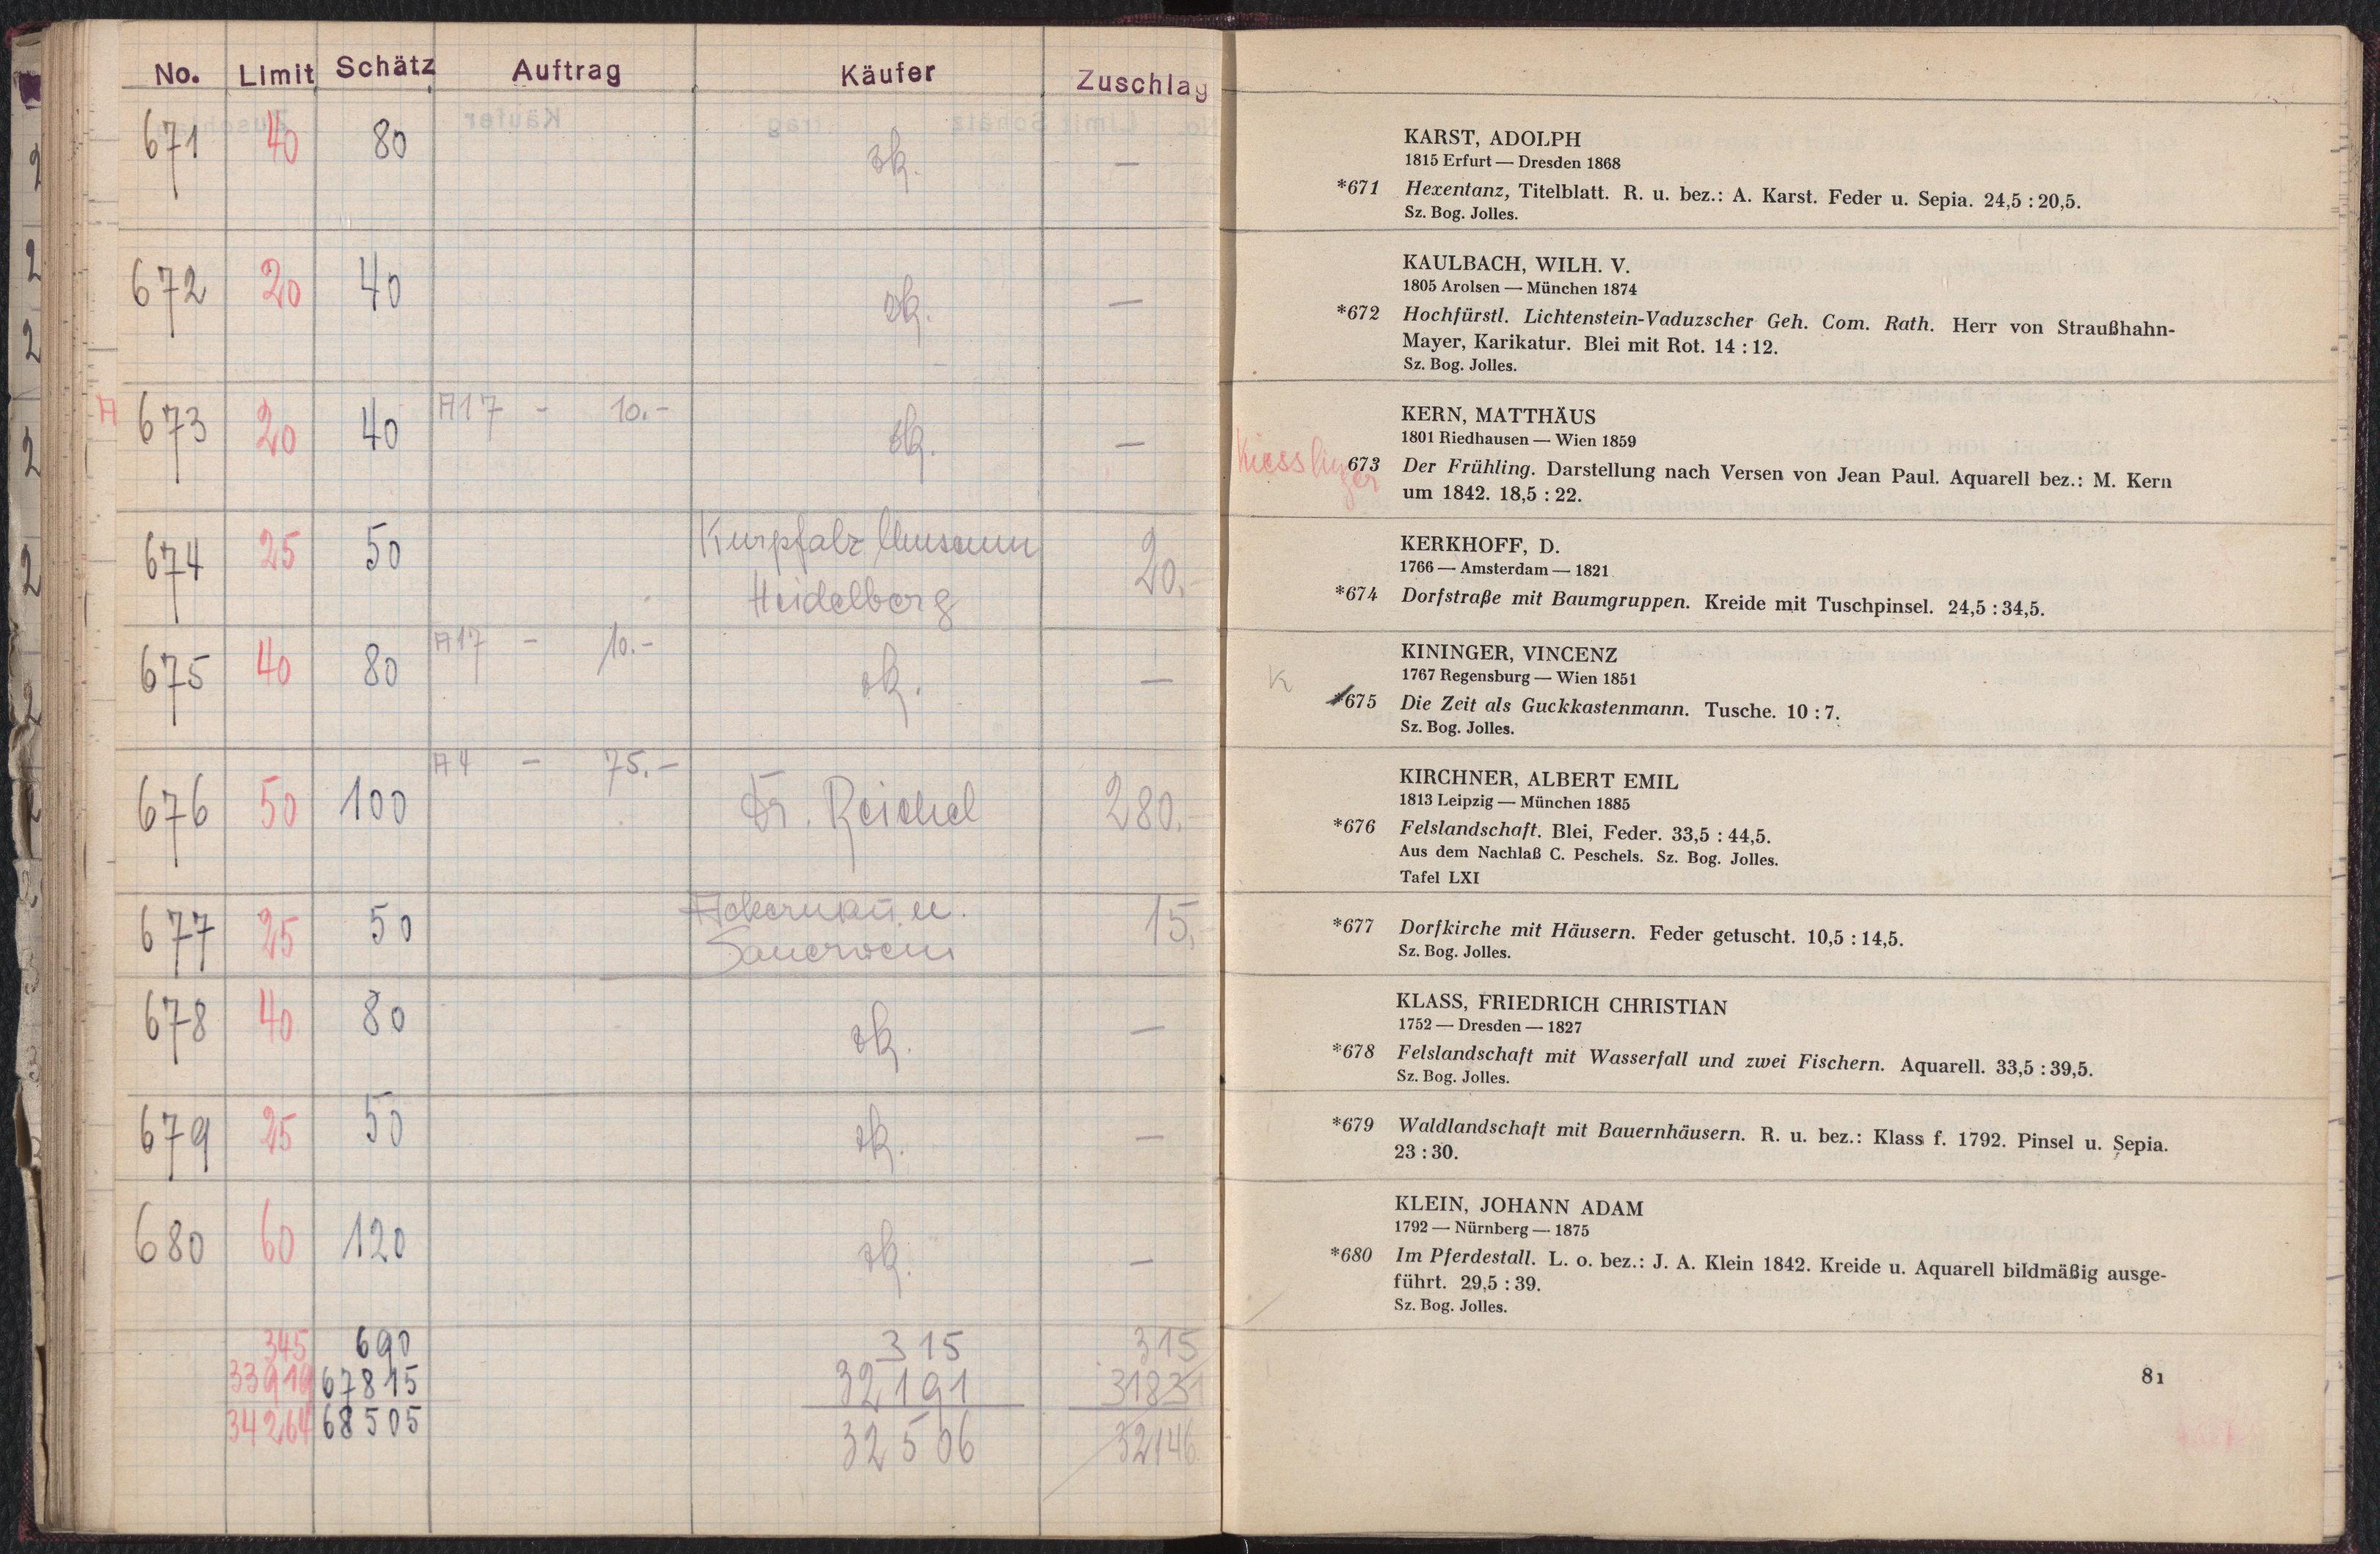 No. Limit Schätz Auftrag Käufer Zuschlag
671 40 80 zk. —
672 20 40 zk. —
A 673 20 40 A17 - 10.- zk. —
674 25 50 Kurpfalz Museum 20.-
Heidelberg
675 40 80 A17 - 10.- zk. —
676 50 100 A4 - 75.- Dr. Reichel 280.-
677 25 50 Ackermann u. 15.-
Sauerwein
678 40 80 zk. —
679 25 50 zk. —
680 60 120 zk. —
345 690 315 315
33919 67815 32191 31831
34264 68505 32506 32146
KARST, ADOLPH
1815 Erfurt — Dresden 1868
*671 Hexentanz, Titelblatt. R. u. bez.: A. Karst. Feder u. Sepia. 24,5 : 20,5.
Sz. Bog. Jolles.
KAULBACH, WILH. V.
1805 Arolsen — München 1874
*672 Hochfürstl. Lichtenstein-Vaduzscher Geh. Com. Rath. Herr von Straußhahn-
Mayer, Karikatur. Blei mit Rot. 14 : 12.
Sz. Bog. Jolles.
KERN, MATTHÄUS
1801 Riedhausen — Wien 1859
Kiesslinger 673 Der Frühling. Darstellung nach Versen von Jean Paul. Aquarell bez.: M. Kern
um 1842. 18,5 : 22.
KERKHOFF, D.
1766 — Amsterdam — 1821
*674 Dorfstraße mit Baumgruppen. Kreide mit Tuschpinsel. 24,5 : 34,5.
KININGER, VINCENZ
1767 Regensburg — Wien 1851
K *675 Die Zeit als Guckkastenmann. Tusche. 10 : 7.
Sz. Bog. Jolles.
KIRCHNER, ALBERT EMIL
1813 Leipzig — München 1885
*676 Felslandschaft. Blei, Feder. 33,5 : 44,5.
Aus dem Nachlaß C. Peschels. Sz. Bog. Jolles.
Tafel LXI
*677 Dorfkirche mit Häusern. Feder getuscht. 10,5 : 14,5.
Sz. Bog. Jolles.
KLASS, FRIEDRICH CHRISTIAN
1752 — Dresden — 1827
*678 Felslandschaft mit Wasserfall und zwei Fischern. Aquarell. 33,5 : 39,5.
Sz. Bog. Jolles.
*679 Waldlandschaft mit Bauernhäusern. R. u. bez.: Klass f. 1792. Pinsel u. Sepia.
23 : 30.
KLEIN, JOHANN ADAM
1792 — Nürnberg — 1875
*680 Im Pferdestall. L. o. bez.: J. A. Klein 1842. Kreide u. Aquarell bildmäßig ausge-
führt. 29,5 : 39.
Sz. Bog. Jolles.
81